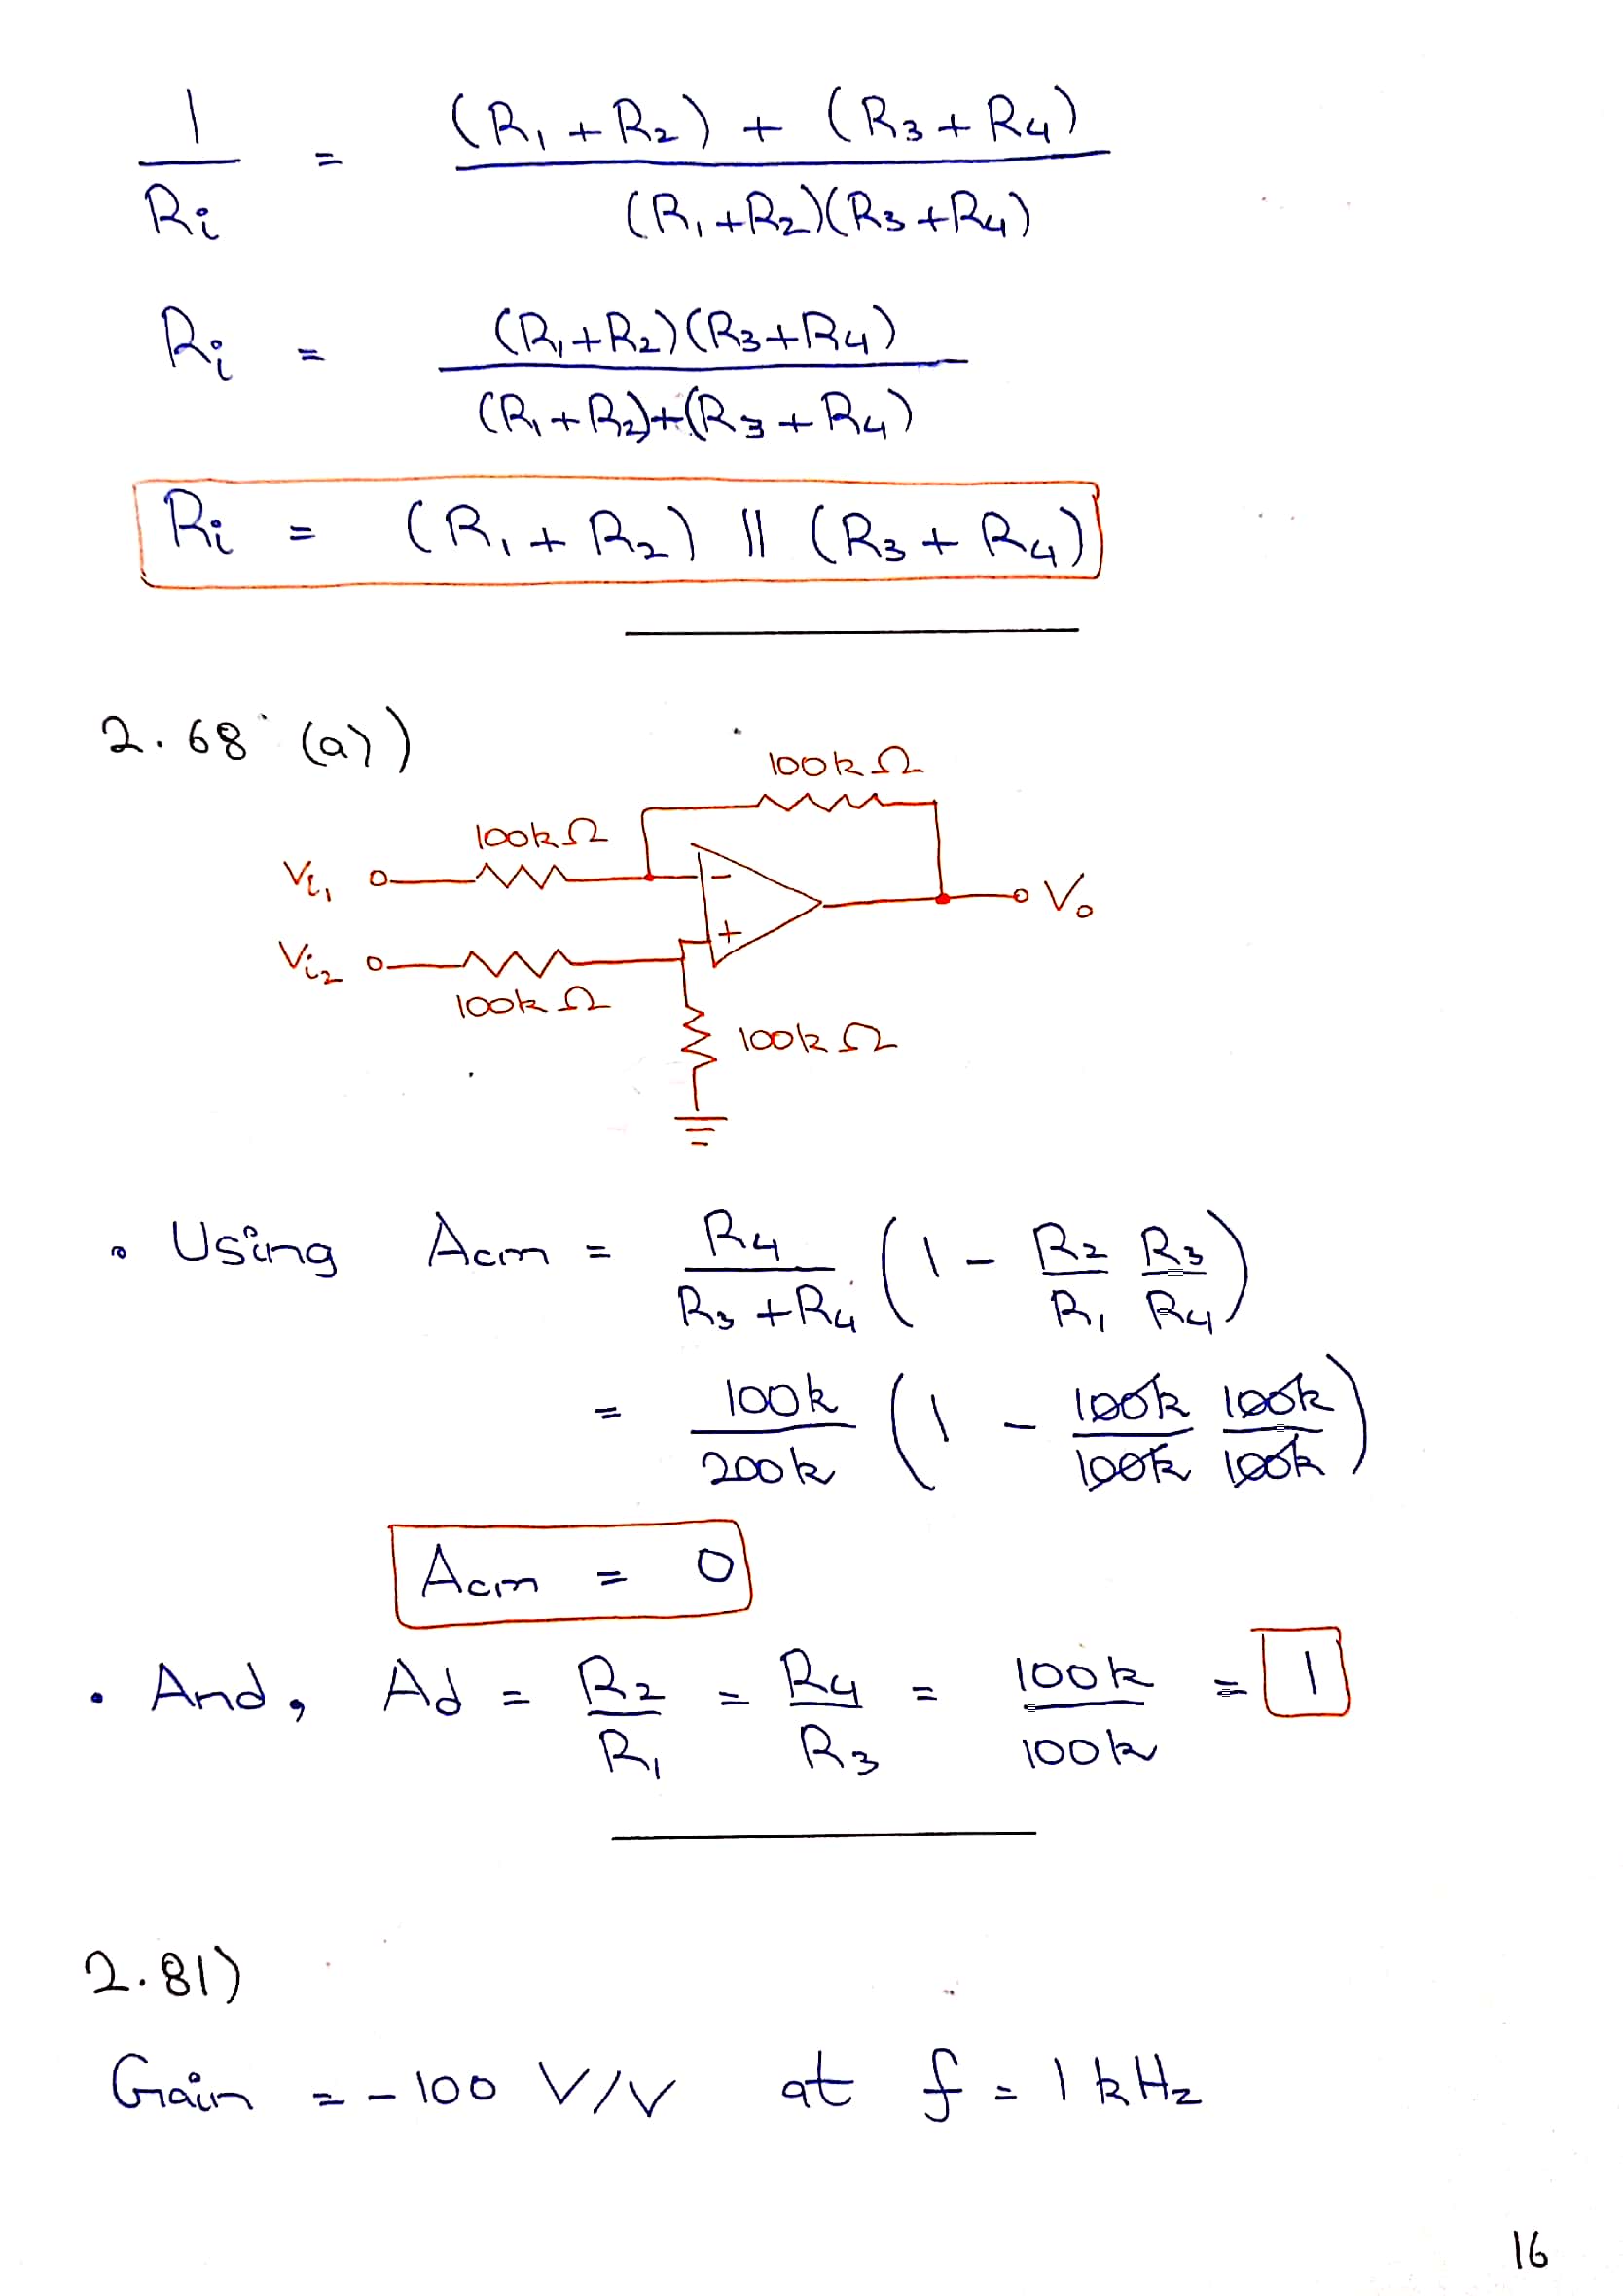 1/Ri = ((R1 + R2) + (R3 + R4)) / ((R1 + R2)(R3 + R4))
Ri = ((R1 + R2)(R3 + R4)) / ((R1 + R2) + (R3 + R4))
Ri = (R1 + R2) || (R3 + R4)
2.68 (a))
100kΩ
100kΩ
Vi1
Vo
Vi2
100kΩ
100kΩ
- 
+
• Using Acm = R4/(R3 + R4) (1 - R2/R1 R3/R4)
= 100k/200k (1 - 100k/100k 100k/100k)
Acm = 0
• And, Ad = R2/R1 = R4/R3 = 100k/100k = 1
2.81)
Gain = -100 V/V at f = 1 kHz
16